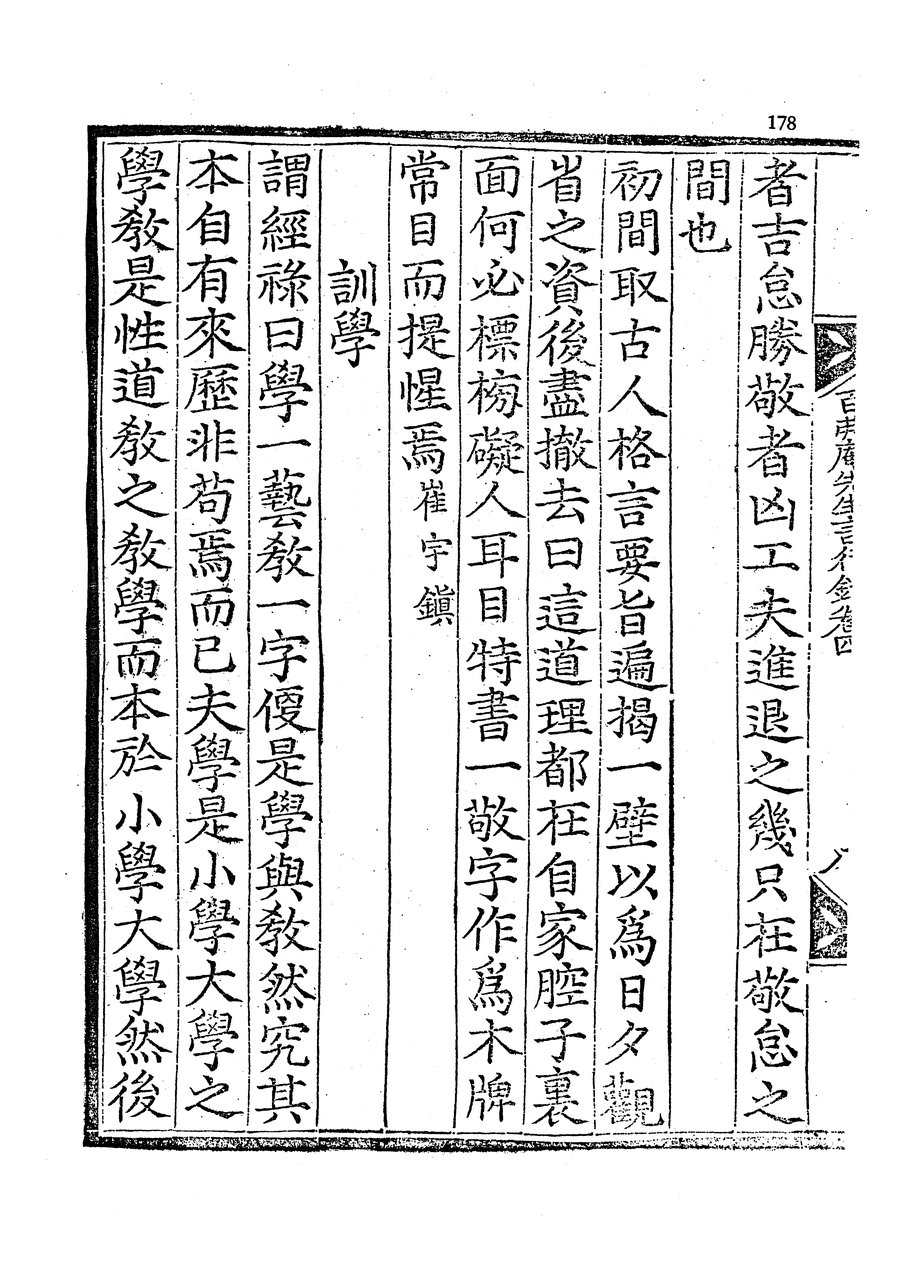 178
者吉怠勝敬者凶工夫進退之幾只在敬怠之
間也
初間取古人格言要旨遍揭一壁以爲日夕觀
省之資後盡撤去曰這道理都在自家腔子裏
面何必標榜礙人耳目特書一敬字作爲木牌
常目而提惺焉崔宇鎭
訓學
謂經祿曰學一藝敎一字便是學與敎然究其
本自有來歷非苟焉而已夫學是小學大學之
學敎是性道敎之敎學而本於小學大學然後
先生言行錄卷四
八